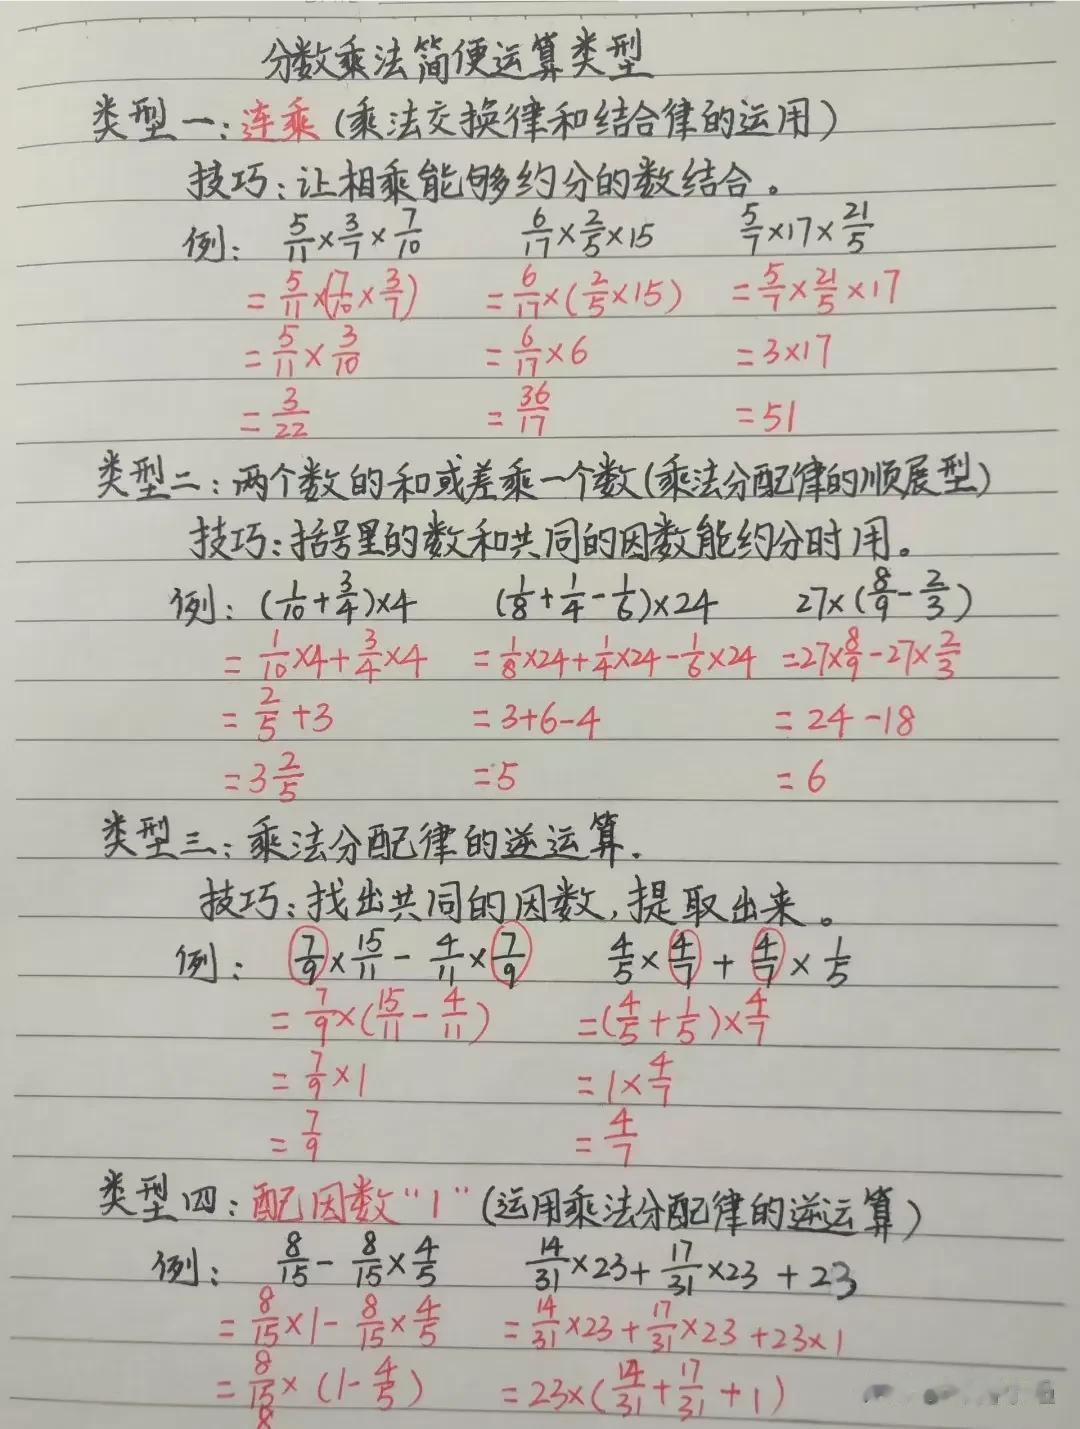 分数乘法简便运算类型
类型一：连乘（乘法交换律和结合律的运用）
技巧：让相乘能够约分的数结合。
例： 5/11×3/7×7/10  6/17×2/5×15  5/7×17×21/5
=5/11×(7/10×3/7)  =6/17×(2/5×15)  =5/7×21/5×17
=5/11×3/10  =6/17×6  =3×17
=3/22  =36/17  =51
类型二：两个数的和或差乘一个数（乘法分配律的顺展型）
技巧：括号里的数和共同的因数能约分时用。
例： (1/10+3/4)×4  (1/8+1/4-1/6)×24  27×(8/9-2/3)
=1/10×4+3/4×4  =1/8×24+1/4×24-1/6×24  =27×8/9-27×2/3
=2/5+3  =3+6-4  =24-18
=3 2/5  =5  =6
类型三：乘法分配律的逆运算.
技巧：找出共同的因数，提取出来。
例： 7/9×15/11-4/11×7/9  4/5×4/7+4/7×1/5
=7/9×(15/11-4/11)  =(4/5+1/5)×4/7
=7/9×1  =1×4/7
=7/9  =4/7
类型四：配因数“1”（运用乘法分配律的逆运算）
例： 8/15-8/15×4/5  14/31×23+17/31×23+23
=8/15×1-8/15×4/5  =14/31×23+17/31×23+23×1
=8/15×(1-4/5)  =23×(14/31+17/31+1)
8